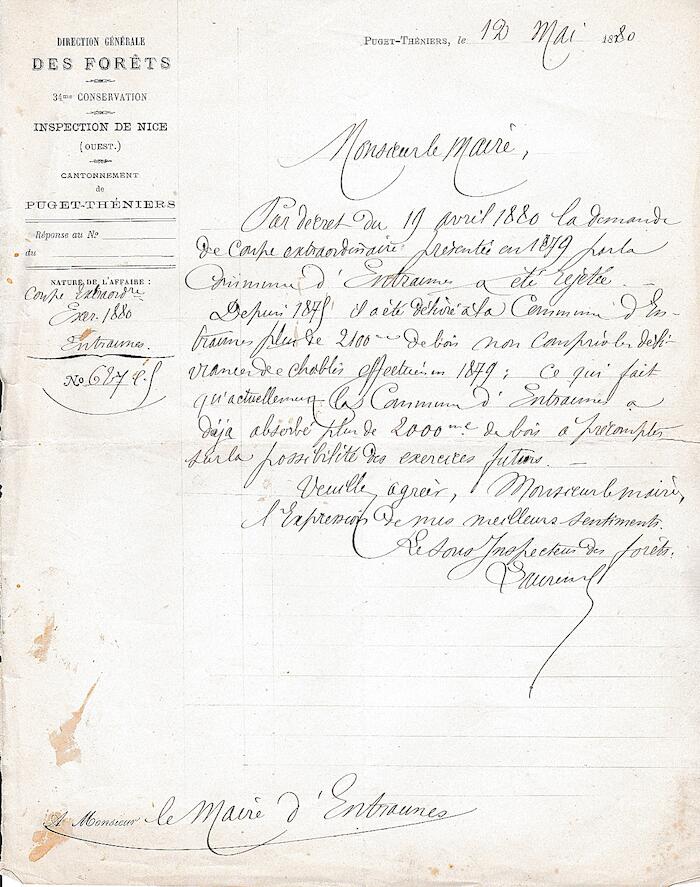 DIRECTION GÉNÉRALE
DES FORÊTS
34me CONSERVATION
INSPECTION DE NICE
(OUEST.)
CANTONNEMENT
de
PUGET-THÉNIERS
Réponse au No
du
NATURE DE L'AFFAIRE :
Coupe Extraordre
Exer. 1880
Entraunes.
No 687
PUGET-THÉNIERS, le 12 Mai 1880
Monsieur le Maire,
Par décret du 19 avril 1880 la demande
de coupe extraordinaire présentée en 1879 par la
Commune d'Entraunes a été rejetée. —
Depuis 1875 il a été délivré à la Commune d'En-
traunes plus de 2100 mc de bois non compris les déli-
vrances de chablis effectuées en 1879 ; ce qui fait
qu'actuellement la Commune d'Entraunes a
déjà absorbé plus de 2000 mc de bois à précompter
sur la possibilité des exercices futurs. —
Veuillez agréer, Monsieur le maire,
l'Expression de mes meilleurs sentiments.
Le Sous Inspecteur des forêts.
A Monsieur le Maire d'Entraunes